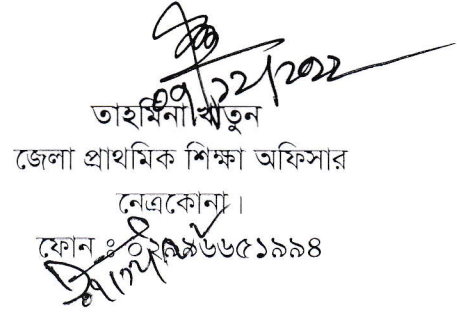 ০৭/১২/২০২২
তাহমিনা খাতুন
জেলা প্রাথমিক শিক্ষা অফিসার
নেত্রকোনা।
ফোন : ০২৯৯৬৬৫১৯৯৪